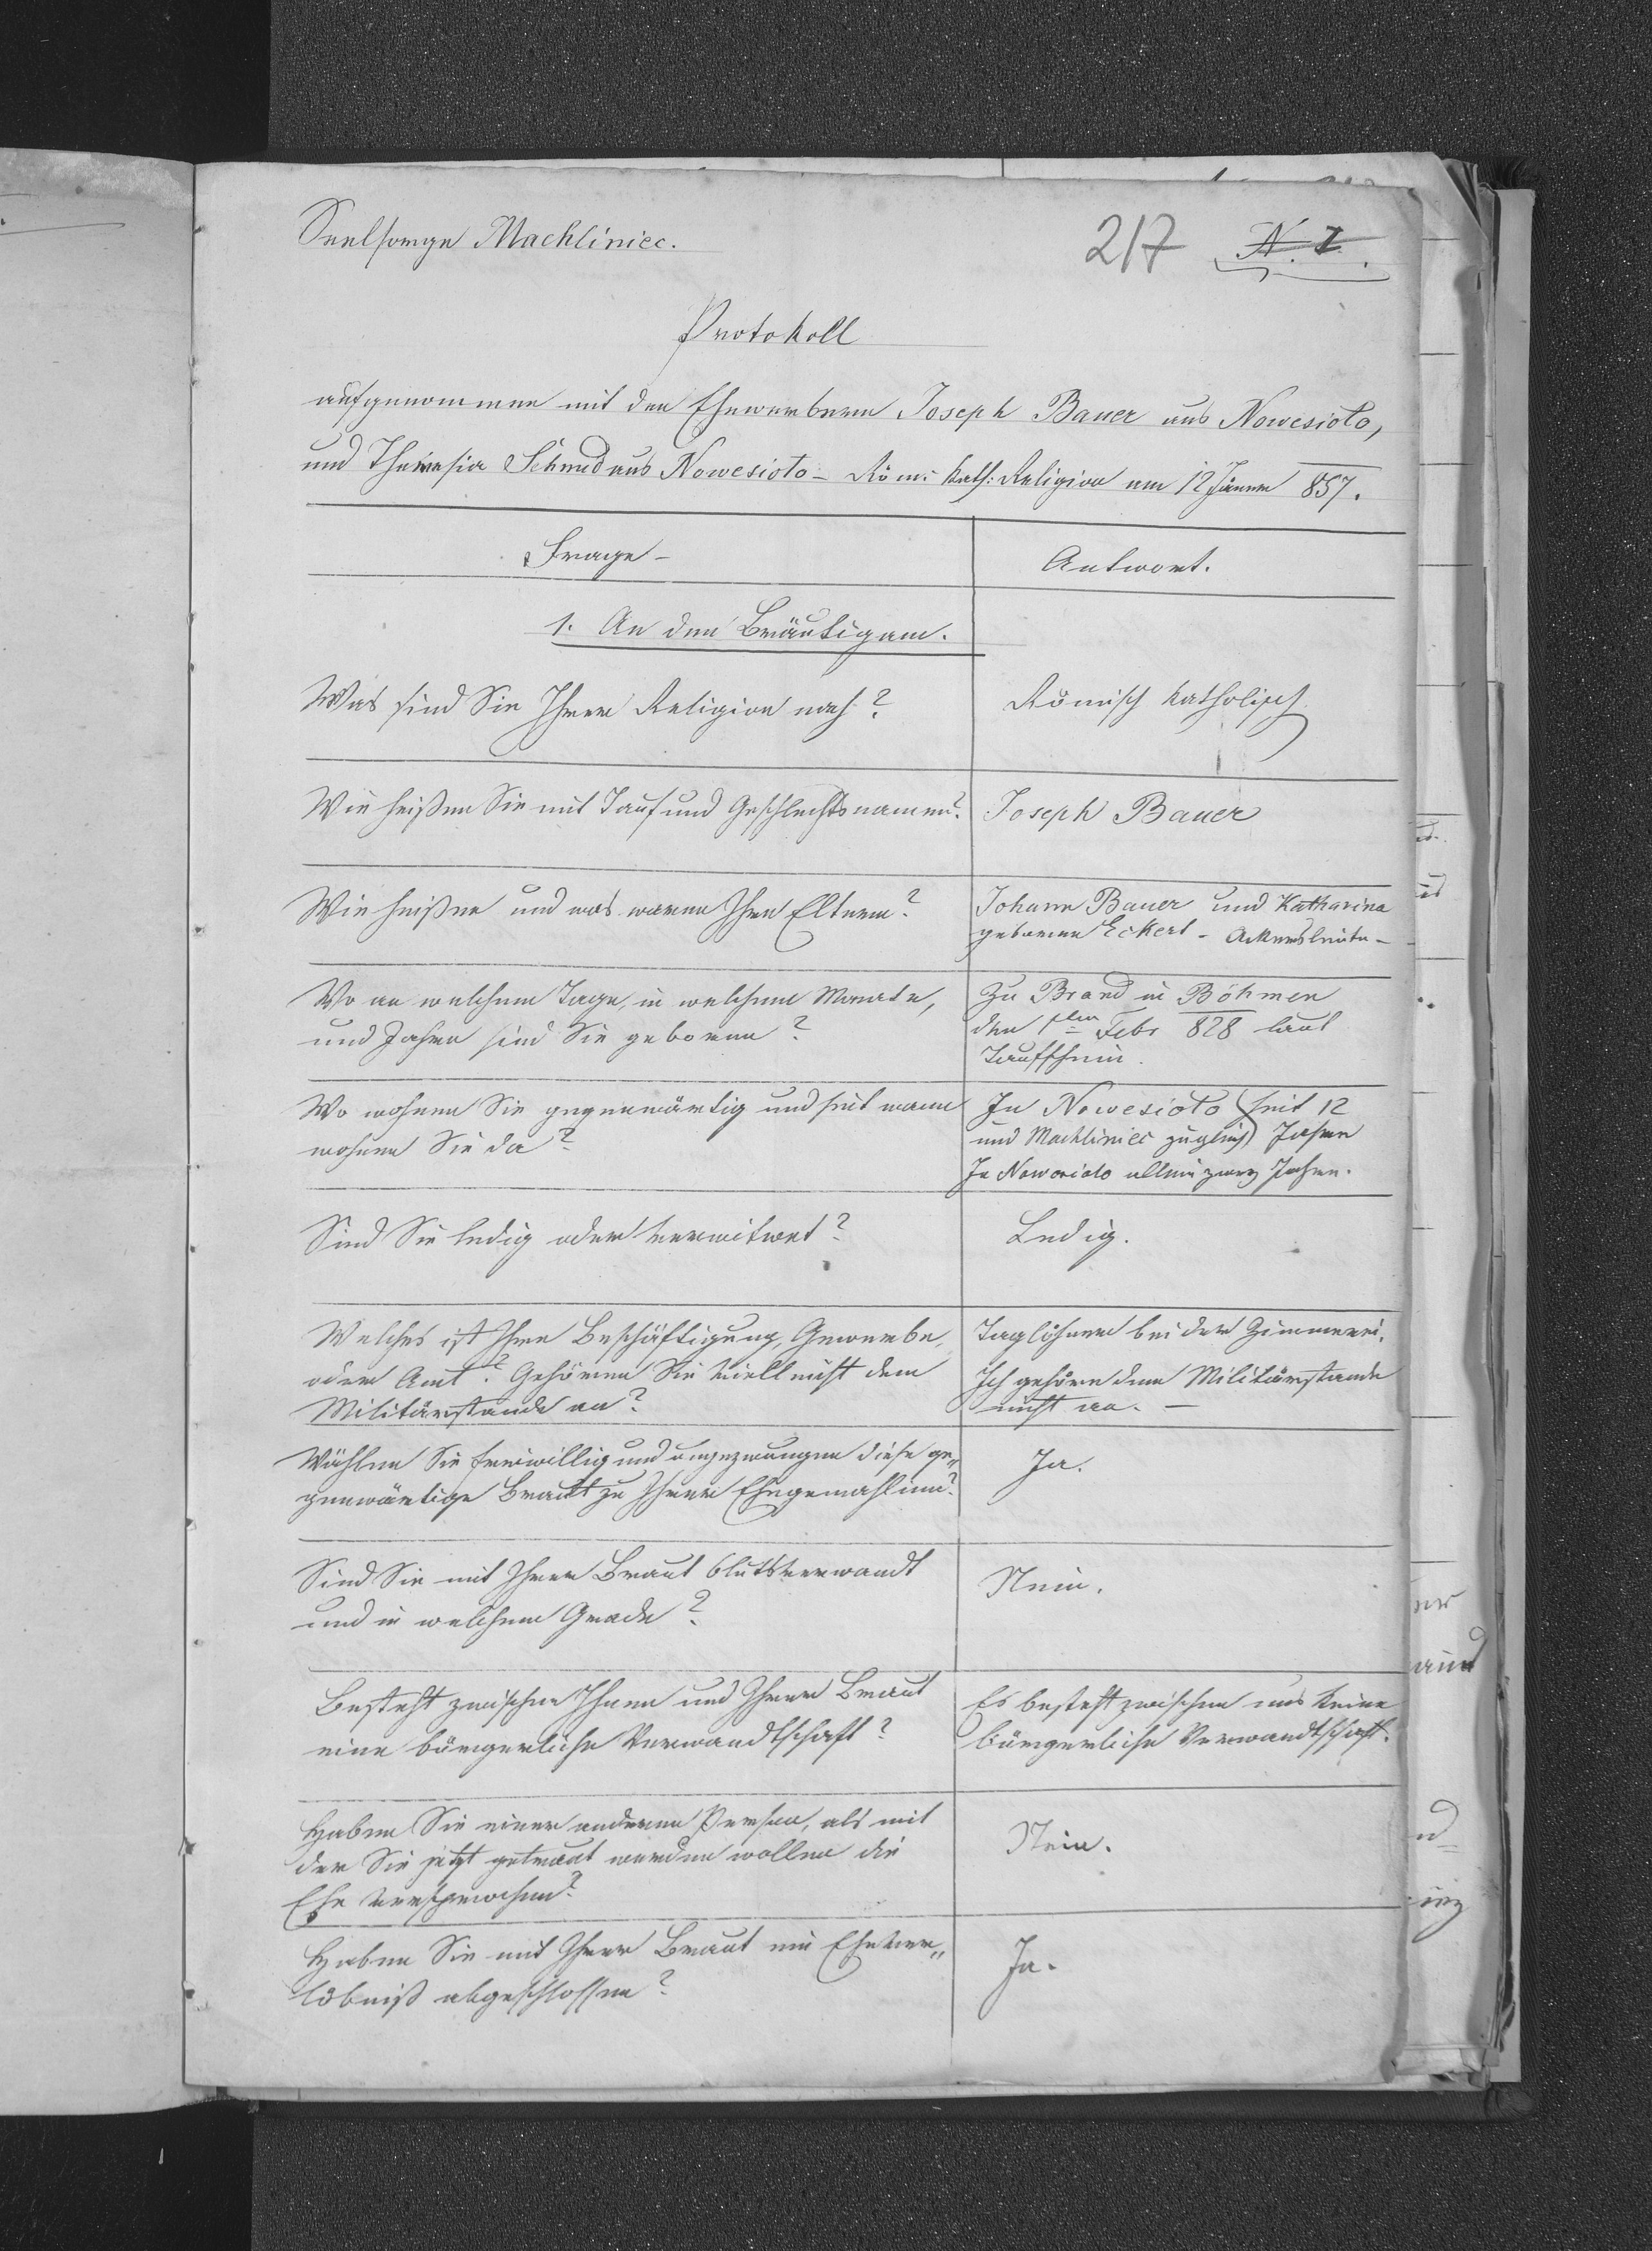 Seelsorge Machliniec.
217 N. 1.
Protokoll
aufgenommen mit den Ehewerbern Joseph Bauer aus Nowesioło,
und Theresia Schmid aus Nowesioło – Röm: Kath: Religion am 12 Jänner 857.
Frage –
Antwort.
1. An den Bräutigam.
Was sind Sie Ihrer Religion nach?
Römisch katholisch
Wie heißen Sie mit Tauf und Geschlechtsnamen?
Joseph Bauer
Wie heißen und was waren Ihre Eltern?
Johann Bauer und Katharina
geborene Eckert – Ackersleute –
Wo an welchem Tage, in welchem Monate,
und Jahre sind Sie geboren?
Zu Brand in Böhmen
den 1ten Febr 828 laut
Taufschein.
Wo wohnen Sie gegenwärtig und seit wann
wohnen Sie da?
In Nowesioło seit 12
und Machliniec zugleich Jahren
In Nowosioło allein zwey Jahre.
Sind Sie ledig oder verwitwet?
Ledig.
Welches ist Ihre Beschäftigung, Gewerbe,
oder Amt? Gehören Sie vielleicht dem
Militärstande an?
Taglöhner bei der Zimmerei.
Ich gehöre dem Militärstande
nicht an. –
Wählen Sie freiwillig und ungezwungen diese ge„
genwärtige Braut zu Ihrer Ehegemahlinn?
Ja.
Sind Sie mit Ihrer Braut blutsverwandt
und in welchem Grade?
Nein.
Besteht zwischen Ihnen und Ihrer Braut
eine bürgerliche Verwandtschaft?
Es besteht zwischen uns keine
bürgerliche Verwandtschaft.
Haben Sie einer anderen Person, als mit
der Sie jetzt getraut werden wollen die
Ehe versprochen?
Nein.
Haben Sie mit Ihrer Braut ein Ehever„
löbniß abgeschlossen?
Ja.